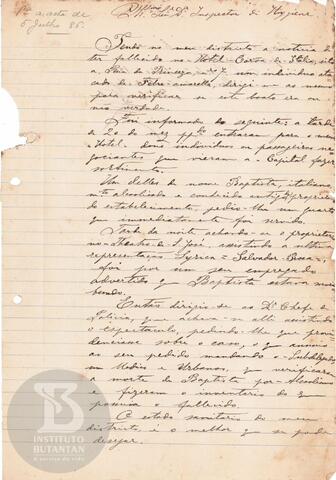 5 Julho 86.
Illmo. Snr. Dr. Inspector de Hygiene
Tendo no meu districto a noticia de
ter fallecido no Hotel - Corôa de Italia, sito
a Rua da Princeza, nº 7 um individuo ata-
cado de Febre-amarella, dirigi-me ao mesmo
para verificar se este boato era ou
não verdade.
Fui informado do seguinte: a tarde
de 20 do mez ppdo entraram para o mesmo
Hotel - dous individuos ou passageiros ne-
gociantes que vieram a Capital fazer
sortimento.
Um delles de nome Baptista, italiano
alcoolisado e conhecido antigo proprie
do estabelecimento, pedio-lhe um quarto
que immediatamente foi servido.
Tarde da noite achando-se o proprietario
no Theatro de S. José, assistindo a ultima
representação Lyrica - Salvador Rosa -
foi por um seu empregado
advertido que Baptista estava mori
bundo.
Então dirigio-se ao Dr Chefe de
Policia, que achava-se alli assistindo
o espectaculo, pedindo-lhe que provi
denciasse sobre o caso, o que annuio
ao seu pedido mandando o Subdelegado
um Medico e Urbanos, que verificaram
a morte de Baptista por - Alcoolismo
e fizeram o inventario do que
possuia o fallecido.
O estado sanitario do meu
districto, é o melhor que se pode
desejar.
INSTITUTO
BUTANTAN
A serviço da vida